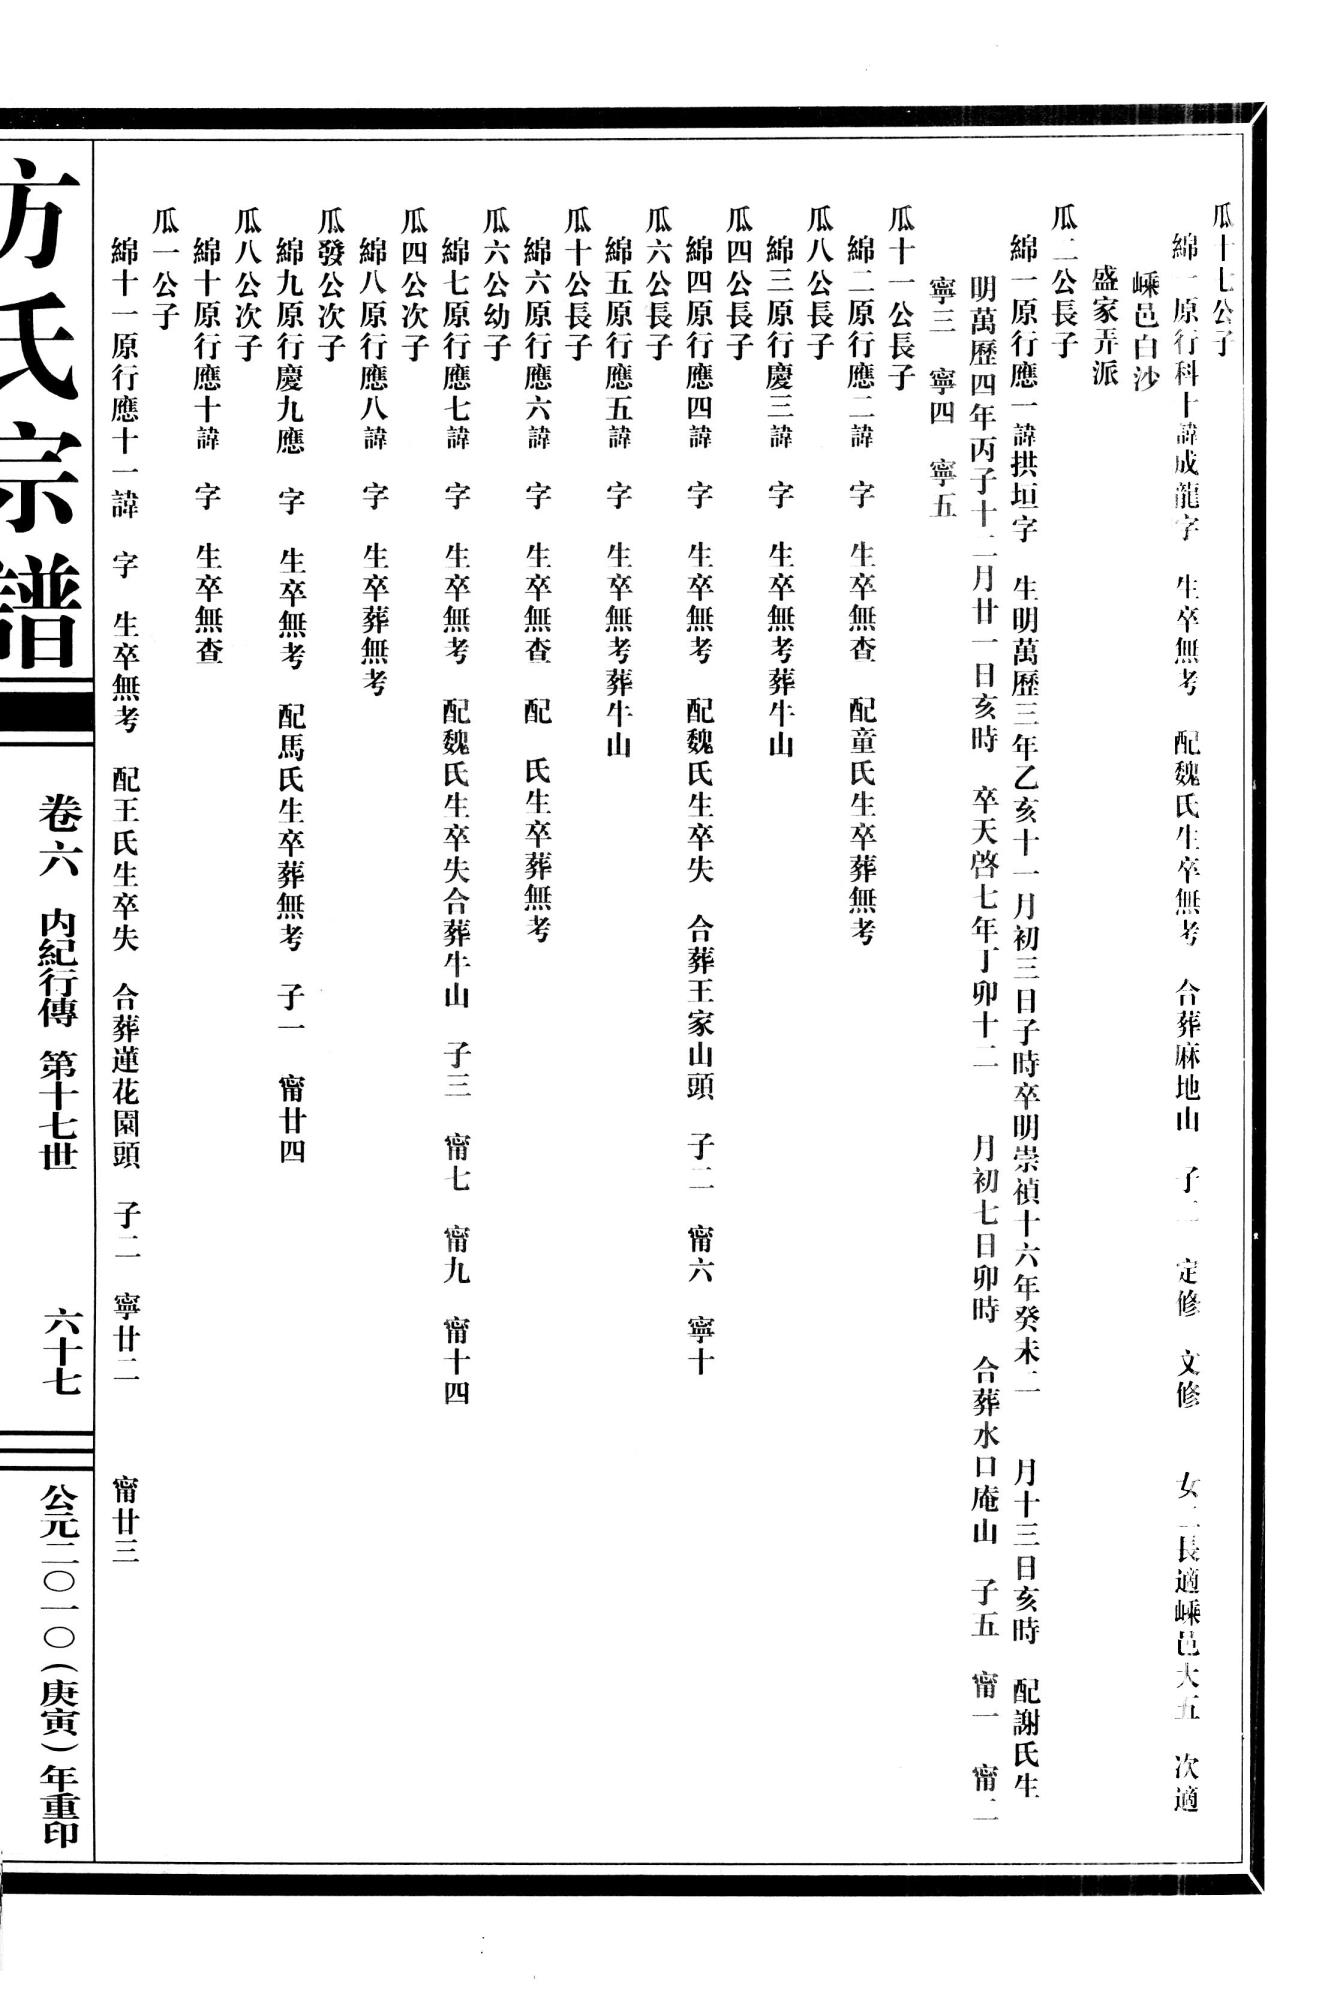 瓜十七公子
綿一原行科十諱成龍字　生卒無考　配魏氏生卒無考　合葬麻地山　子二　定修　文修　女二長適嵊邑大五　次適
嵊邑白沙
盛家弄派
瓜二公長子
綿一原行應一諱拱垣字　生明萬歷三年乙亥十一月初三日子時卒明崇禎十六年癸未二　月十三日亥時　配謝氏生
明萬歷四年丙子十二月廿一日亥時　卒天啓七年丁卯十二　月初七日卯時　合葬水口庵山　子五　甯一　甯二
寧三　寧四　寧五
瓜十一公長子
綿二原行應二諱　字　生卒無查　配童氏生卒葬無考
瓜八公長子
綿三原行慶三諱　字　生卒無考葬牛山
瓜四公長子
綿四原行應四諱　字　生卒無考　配魏氏生卒失　合葬王家山頭　子二　甯六　寧十
瓜六公長子
綿五原行應五諱　字　生卒無考葬牛山
瓜十公長子
綿六原行應六諱　字　生卒無查　配　氏生卒葬無考
瓜六公幼子
綿七原行應七諱　字　生卒無考　配魏氏生卒失合葬牛山　子三　甯七　甯九　甯十四
瓜四公次子
綿八原行應八諱　字　生卒葬無考
瓜發公次子
綿九原行慶九應　字　生卒無考　配馬氏生卒葬無考　子一　甯廿四
瓜八公次子
綿十原行應十諱　字　生卒無查
瓜一公子
綿十一原行應十一諱　字　生卒無考　配王氏生卒失　合葬蓮花園頭　子二　寧廿二　甯廿三
方氏宗譜
卷六　内紀行傳　第十七世　六十七
公元二〇一〇(庚寅)年重印